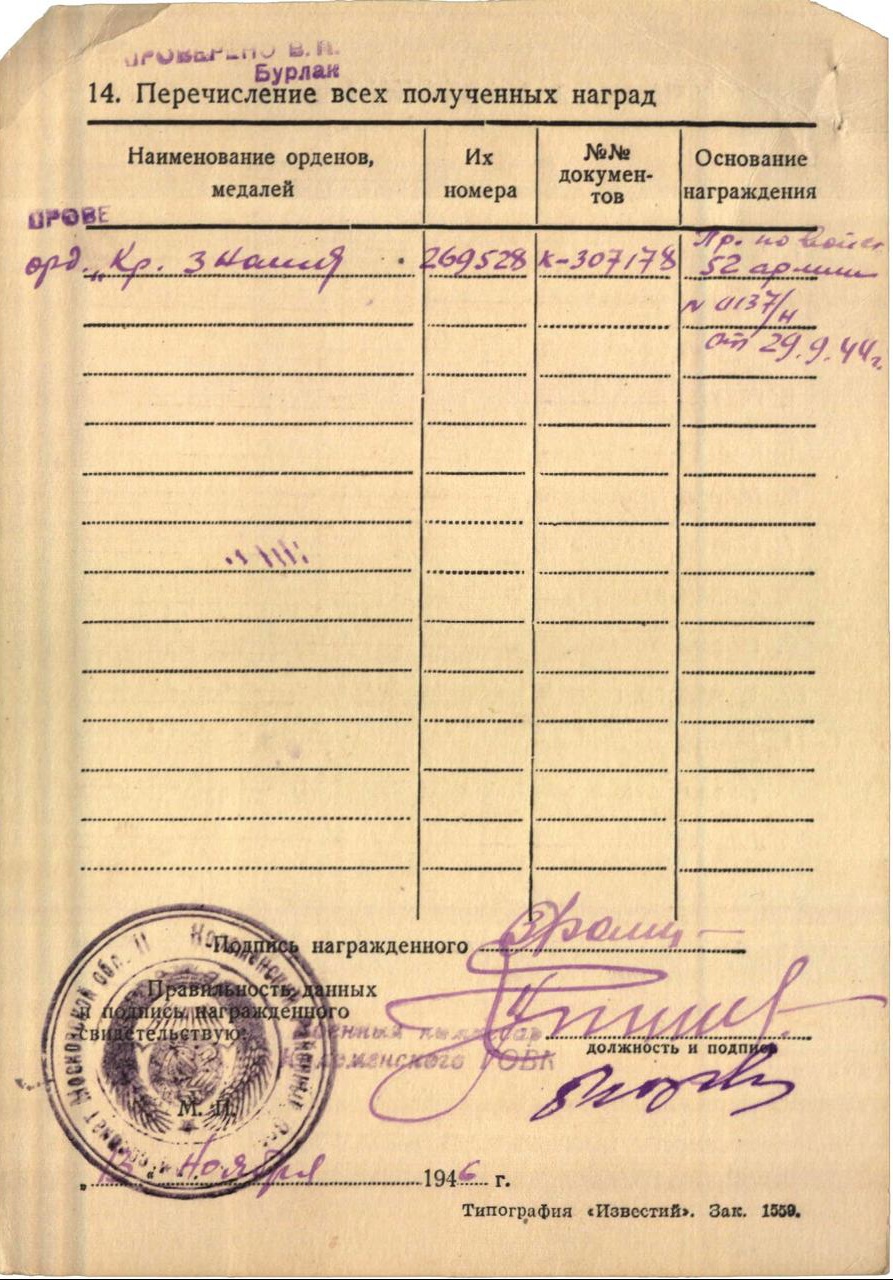 ПРОВЕРЕНО В. П.
Бурлак
14. Перечисление всех полученных наград
Наименование орденов, медалей
Их номера
№№ докумен-тов
Основание награждения
ПРОВЕ
орд. „Кр. Знамя 269528 к-307178 Пр. по войск
52 армии
N 0137/н
от 29.9.44 г.
Подпись награжденного
Правильность данных
и подпись награжденного
свидетельствую:
Военный комиссар
Коломенского ГОВК
должность и подпись
М. П.
„13 ноября 1946 г.
Типография «Известий». Зак. 1559.